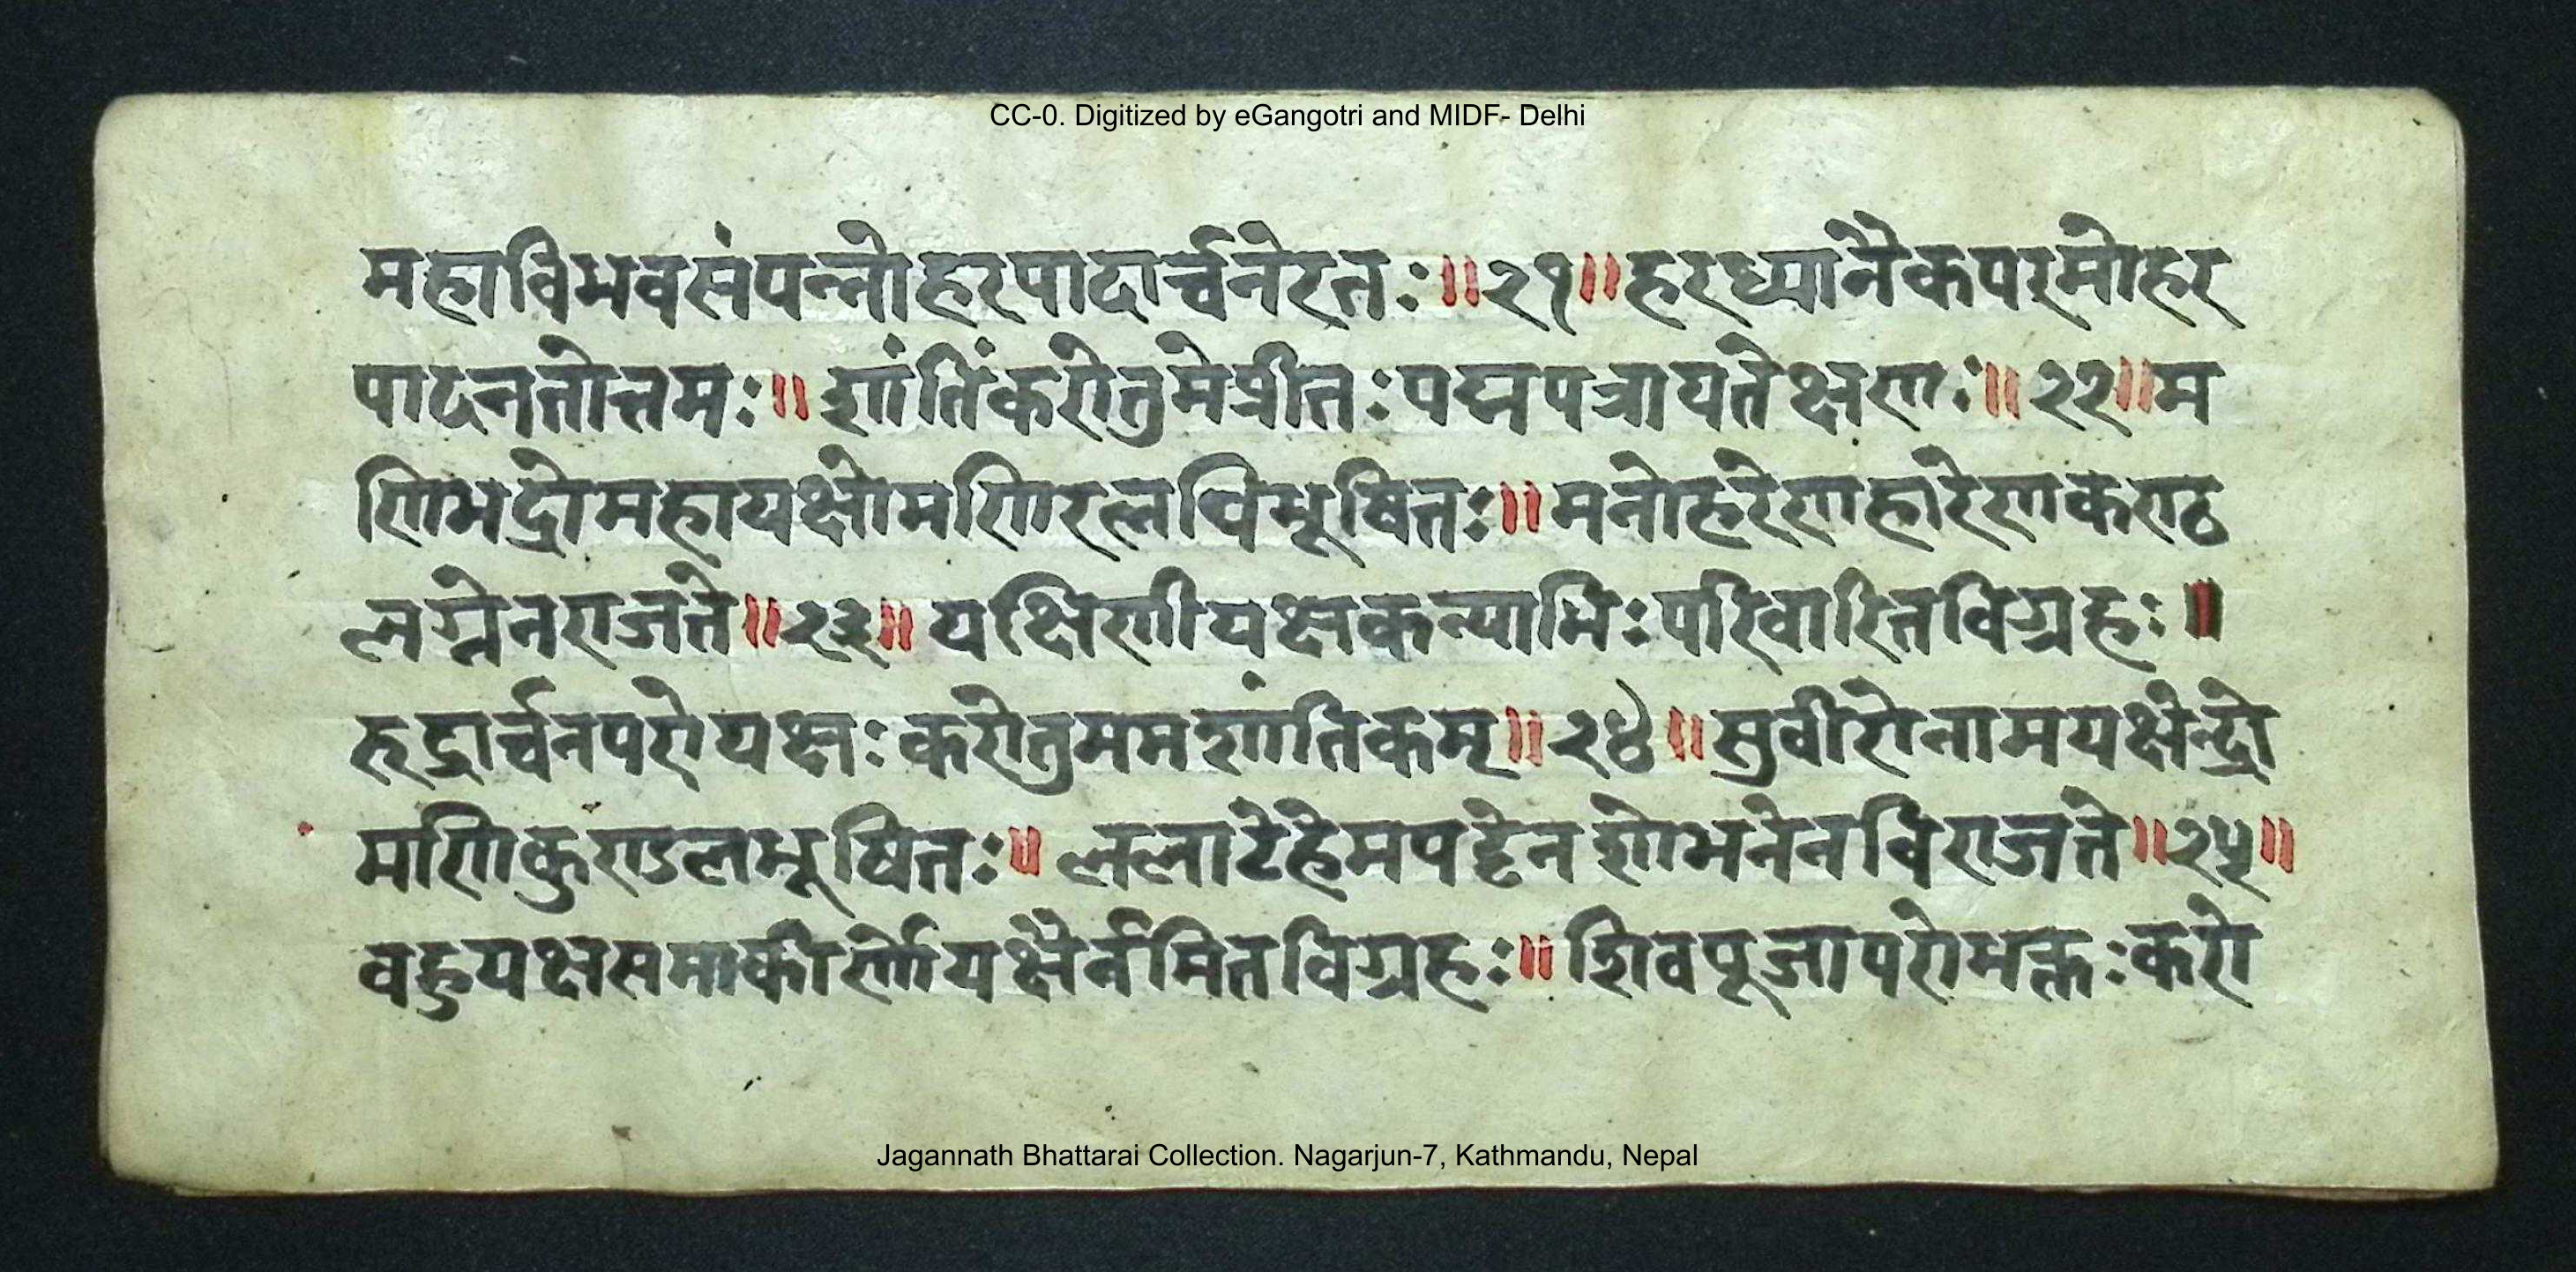 CC-0. Digitized by eGangotri and MIDF- Delhi
महाविभवसंपन्नोहरपादार्च्चनेरतः॥२१॥हरध्यानैकपरमोहर
पादनतोत्तमः॥शांतिंकरोतुमेप्रीतःपद्मपत्रायतेक्षणः॥२२॥म
णिभद्रोमहायक्षोमणिरत्नविभूषितः॥मनोहरेणहारेणकण्ठ
लग्नेनराजते॥२३॥यक्षिणीयक्षकन्याभिःपरिवारितविग्रहः॥
रुद्रार्च्चनपरोयक्षःकरोतुममशांतिकम्॥२४॥सुवीरोनामयक्षेन्द्रो
मणिकुण्डलभूषितः॥ललाटेहेमपट्टेनशोभनेनविराजते॥२५॥
वहुयक्षसमाकीर्णोयक्षैर्नमितविग्रहः॥शिवपूजापरोभक्तःकरो
Jagannath Bhattarai Collection. Nagarjun-7, Kathmandu, Nepal